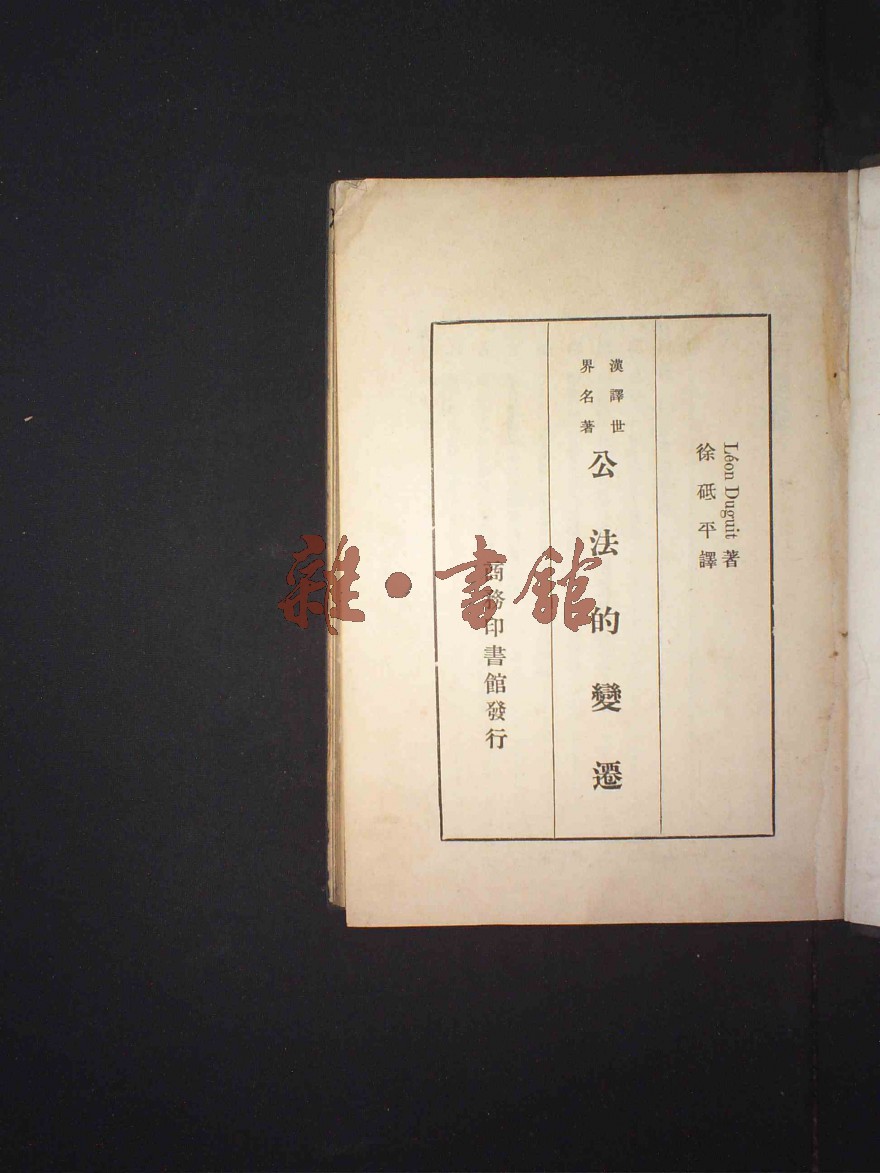 Léon Duguit 著
徐砥平譯
漢譯世
界名著
公法的變遷
商務印書館發行
雜·書館